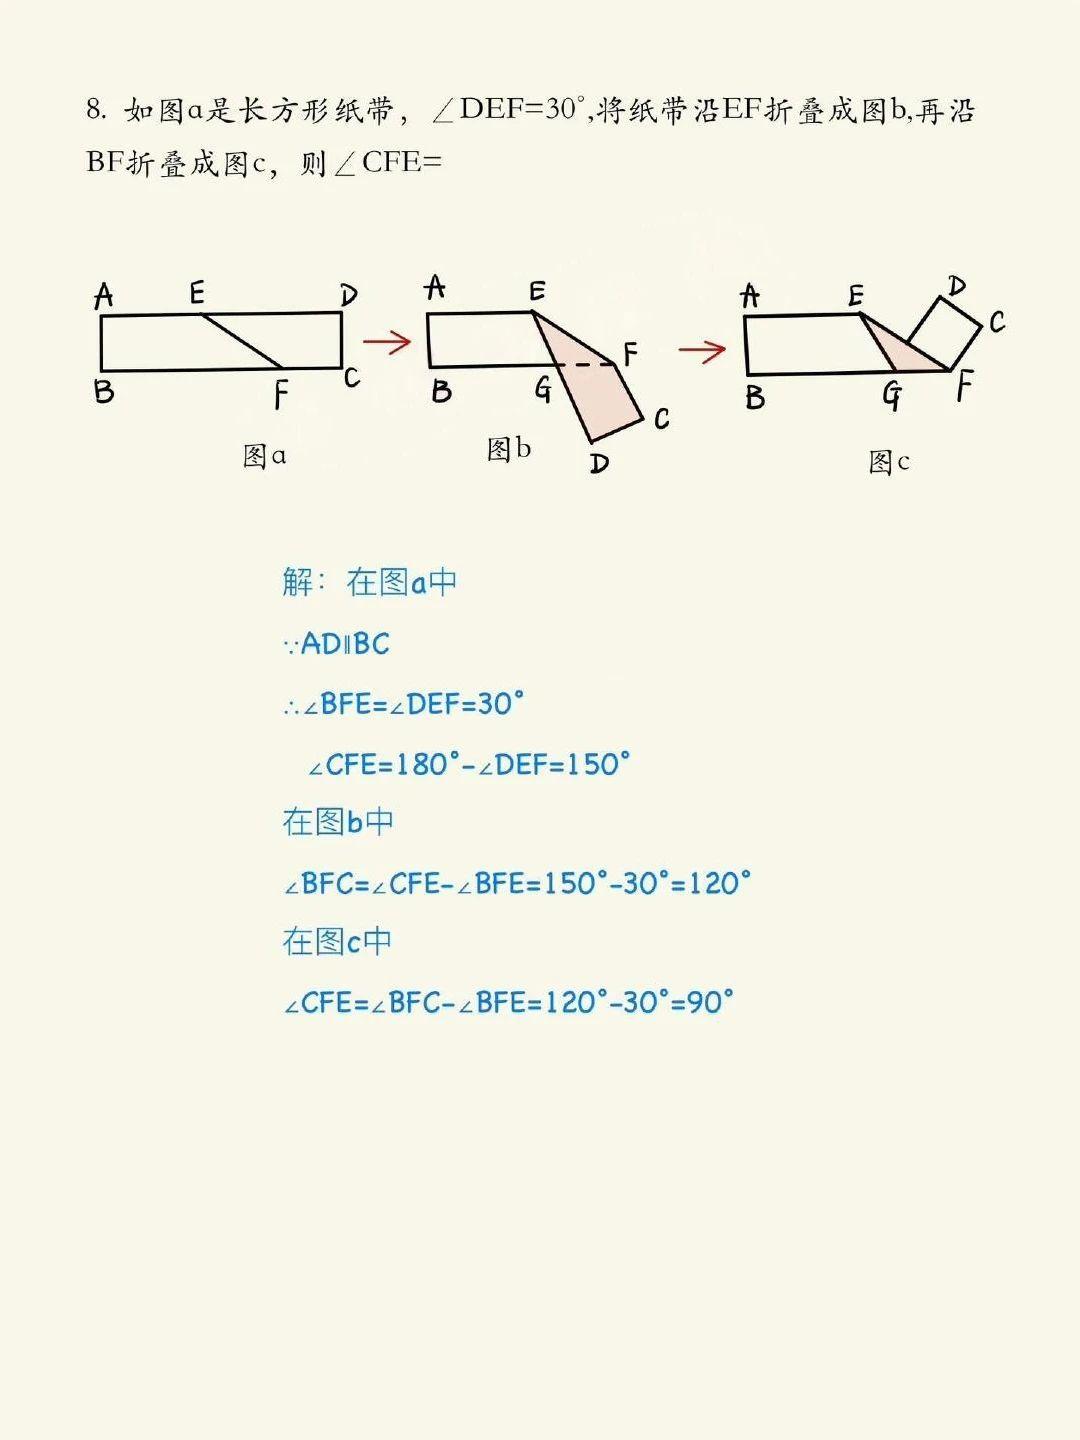 8. 如图a是长方形纸带，∠DEF=30°,将纸带沿EF折叠成图b,再沿
BF折叠成图c，则∠CFE=
A E D
B F C
图a
A E
B G F
D C
图b
A E D
B G F C
图c
解：在图a中
∵AD∥BC
∴∠BFE=∠DEF=30°
∠CFE=180°-∠DEF=150°
在图b中
∠BFC=∠CFE-∠BFE=150°-30°=120°
在图c中
∠CFE=∠BFC-∠BFE=120°-30°=90°